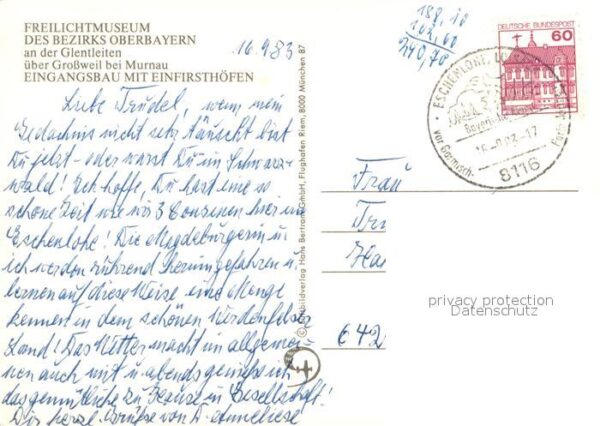 FREILICHTMUSEUM
DES BEZIRKS OBERBAYERN
an der Glentleiten
über Großweil bei Murnau
EINGANGSBAU MIT EINFIRSTHÖFEN
16.9.83
Liebe Trudel, wenn mein
Gedächnis nicht sehr täuscht bist
Du jetzt - oder warst Du im Schwarz-
wald! Ich hoffe, Du hast eine so
schöne Zeit wie wir 3 Cousinen hier in
Eschenlohe! Die Magdeburgerin u.
ich werden rührend herumgefahren u.
lernen auf diese Weise eine Menge
kennen in dem schönen Werdenfelser
Land! Das Wetter macht im allgemei-
nen auch mit u. abends genieße ich
das gemütliche zu Hause in Gesellschaft!
Dir herzl. Grüße von D. Anneliese
Luftbildverlag Hans Bertram GmbH, Flughafen Riem, 8000 München 87
188,10
102,60
240,70
DEUTSCHE BUNDESPOST
60
ESCHENLOHE
vor Garmisch-
8116
Frau
Tru
Ha
642
privacy protection
Datenschutz